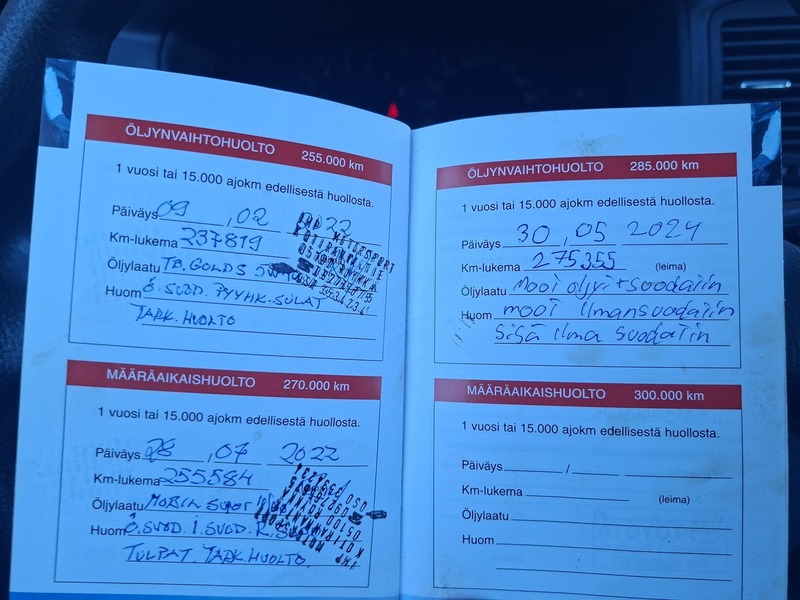 ÖLJYNVAIHTOHUOLTO 255.000 km
1 vuosi tai 15.000 ajokm edellisestä huollosta.
Päiväys 09 , 02 2022
Km-lukema 237819
Öljylaatu
Huom Ö.SUOD. PYYHK.SULAT
TARK.HUOLTO
MÄÄRÄAIKAISHUOLTO 270.000 km
1 vuosi tai 15.000 ajokm edellisestä huollosta.
Päiväys 28 , 07 2022
Km-lukema 255584
Öljylaatu
Huom Ö.SUOD. I.SUOD. R.
TULPAT. TARK.HUOLTO.
ÖLJYNVAIHTOHUOLTO 285.000 km
1 vuosi tai 15.000 ajokm edellisestä huollosta.
Päiväys 30 , 05 2024
Km-lukema 275355 (leima)
Öljylaatu mooi öljyi+suodatin
Huom mooi ilmansuodatin
sisä ilma suodatin
MÄÄRÄAIKAISHUOLTO 300.000 km
1 vuosi tai 15.000 ajokm edellisestä huollosta.
Päiväys /
Km-lukema (leima)
Öljylaatu
Huom